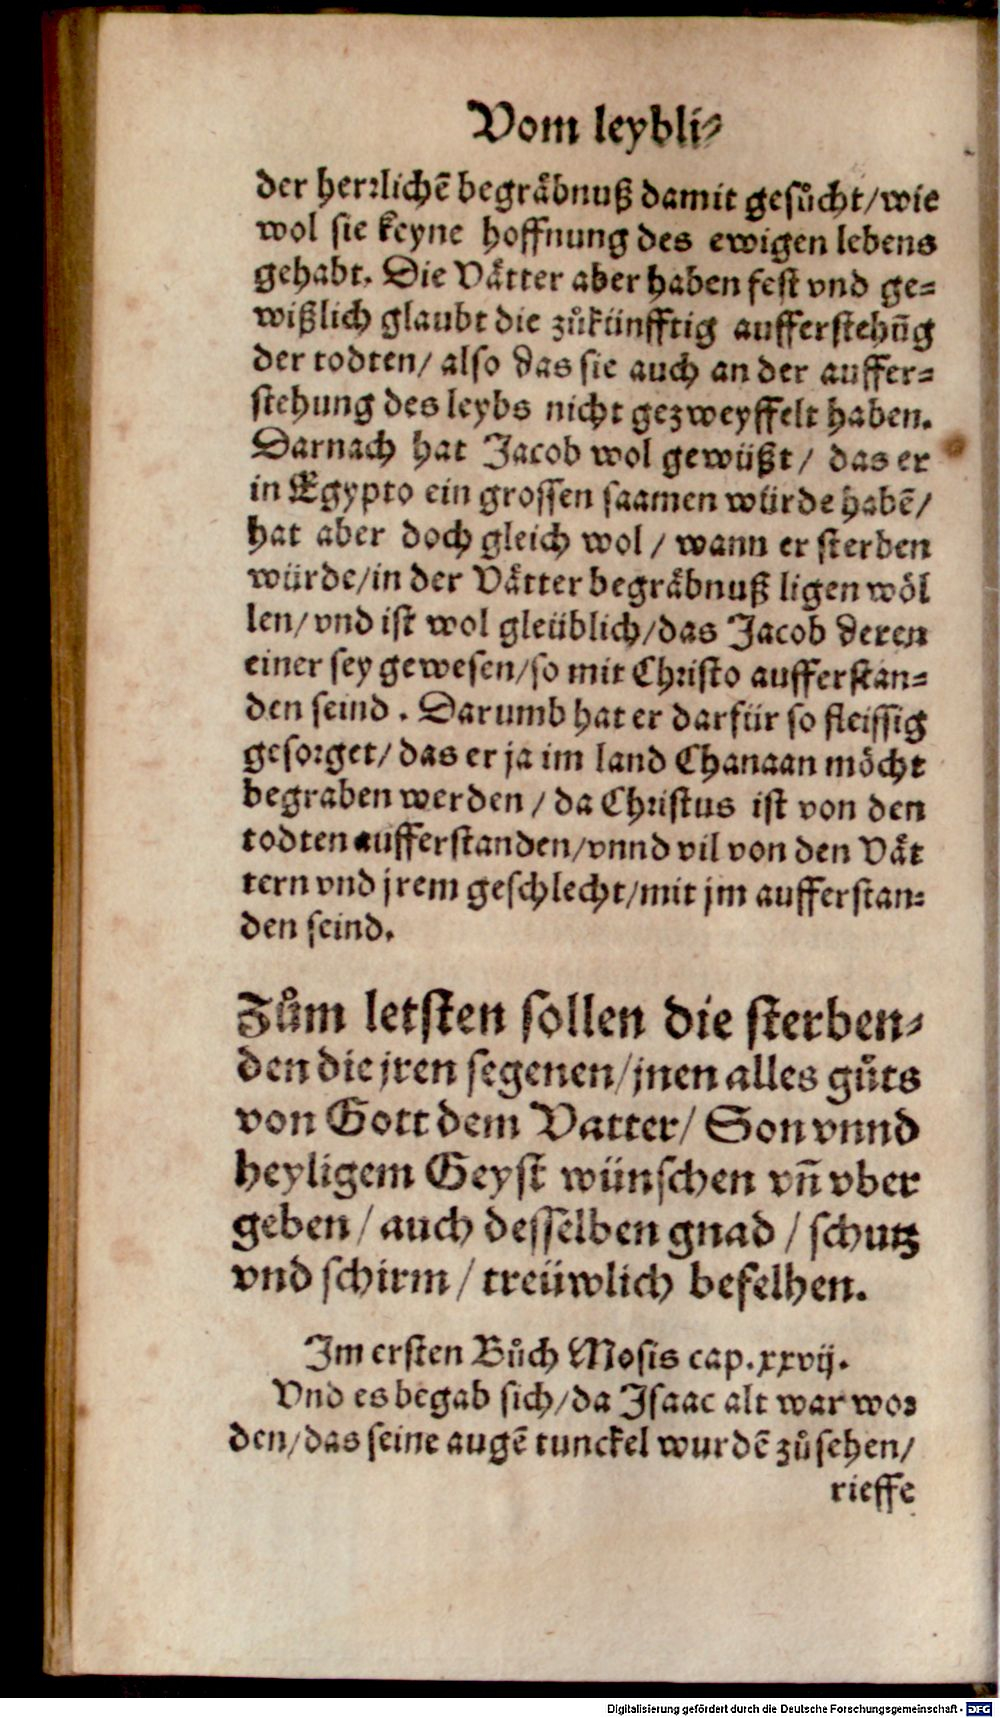 Vom leybli⸗
der herꝛlichē begraͤbnuß damit geſuͦcht/wie
wol ſie keyne hoffnung des ewigen lebens
gehabt. Die Vaͤtter aber haben feſt vnd ge⸗
wißlich glaubt die zuͦkünfftig aufferſtehūg
der todten/ alſo das ſie auch an der auffer⸗
ſtehung des leybs nicht gezweyffelt haben.
Darnach hat Jacob wol gewüßt/ das er
in Egypto ein groſſen ſaamen würde habē/
hat aber doch gleich wol / wann er ſterben
würde/in der Vaͤtter begraͤbnuß ligen woͤl
len/ vnd iſt wol gleüblich/das Jacob deren
einer ſey geweſen/ſo mit Chꝛiſto aufferſtan⸗
den ſeind . Darumb hat er darfür ſo fleiſſig
geſoꝛget/ das er ja im land Chanaan moͤcht
begraben werden / da Chꝛiſtus iſt von den
todten aufferſtanden/vnnd vil von den Vaͤt
tern vnd jrem geſchlecht/mit jm aufferſtan⸗
den ſeind.
Zuͦm letſten ſollen die ſterben⸗
den die jren ſegenen/jnen alles guͦts
von Gott dem Vatter/ Son vnnd
heyligem Geyſt wünſchen vn̄ vber
geben / auch deſſelben gnad / ſchutz
vnd ſchirm / treüwlich befelhen.
Im erſten Buͦch Moſis cap.xxvij.
Vnd es begab ſich/da Iſaac alt war woꝛ
den/das ſeine augē tunckel wurdē zuͦ ſehen/
rieffe
Digitalisierung gefördert durch die Deutsche Forschungsgemeinschaft - DFG